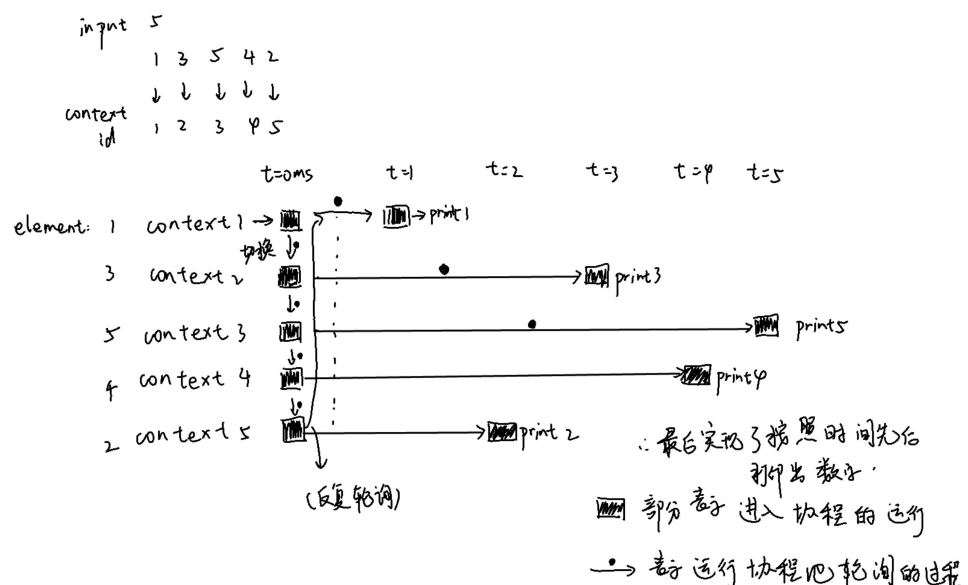 input 5
1 3 5 4 2
↓ ↓ ↓ ↓ ↓
context id 1 2 3 4 5
t=0ms t=1 t=2 t=3 t=4 t=5
element: 1 context 1 → → print1
切换
3 context 2 print3
5 context 3 print5
4 context 4 print4
2 context 5 print 2
(反复轮询)
∴最后实现了按照时间先后
打印出数字.
部分表示进入协程的运行
表示运行协程池轮询的过程